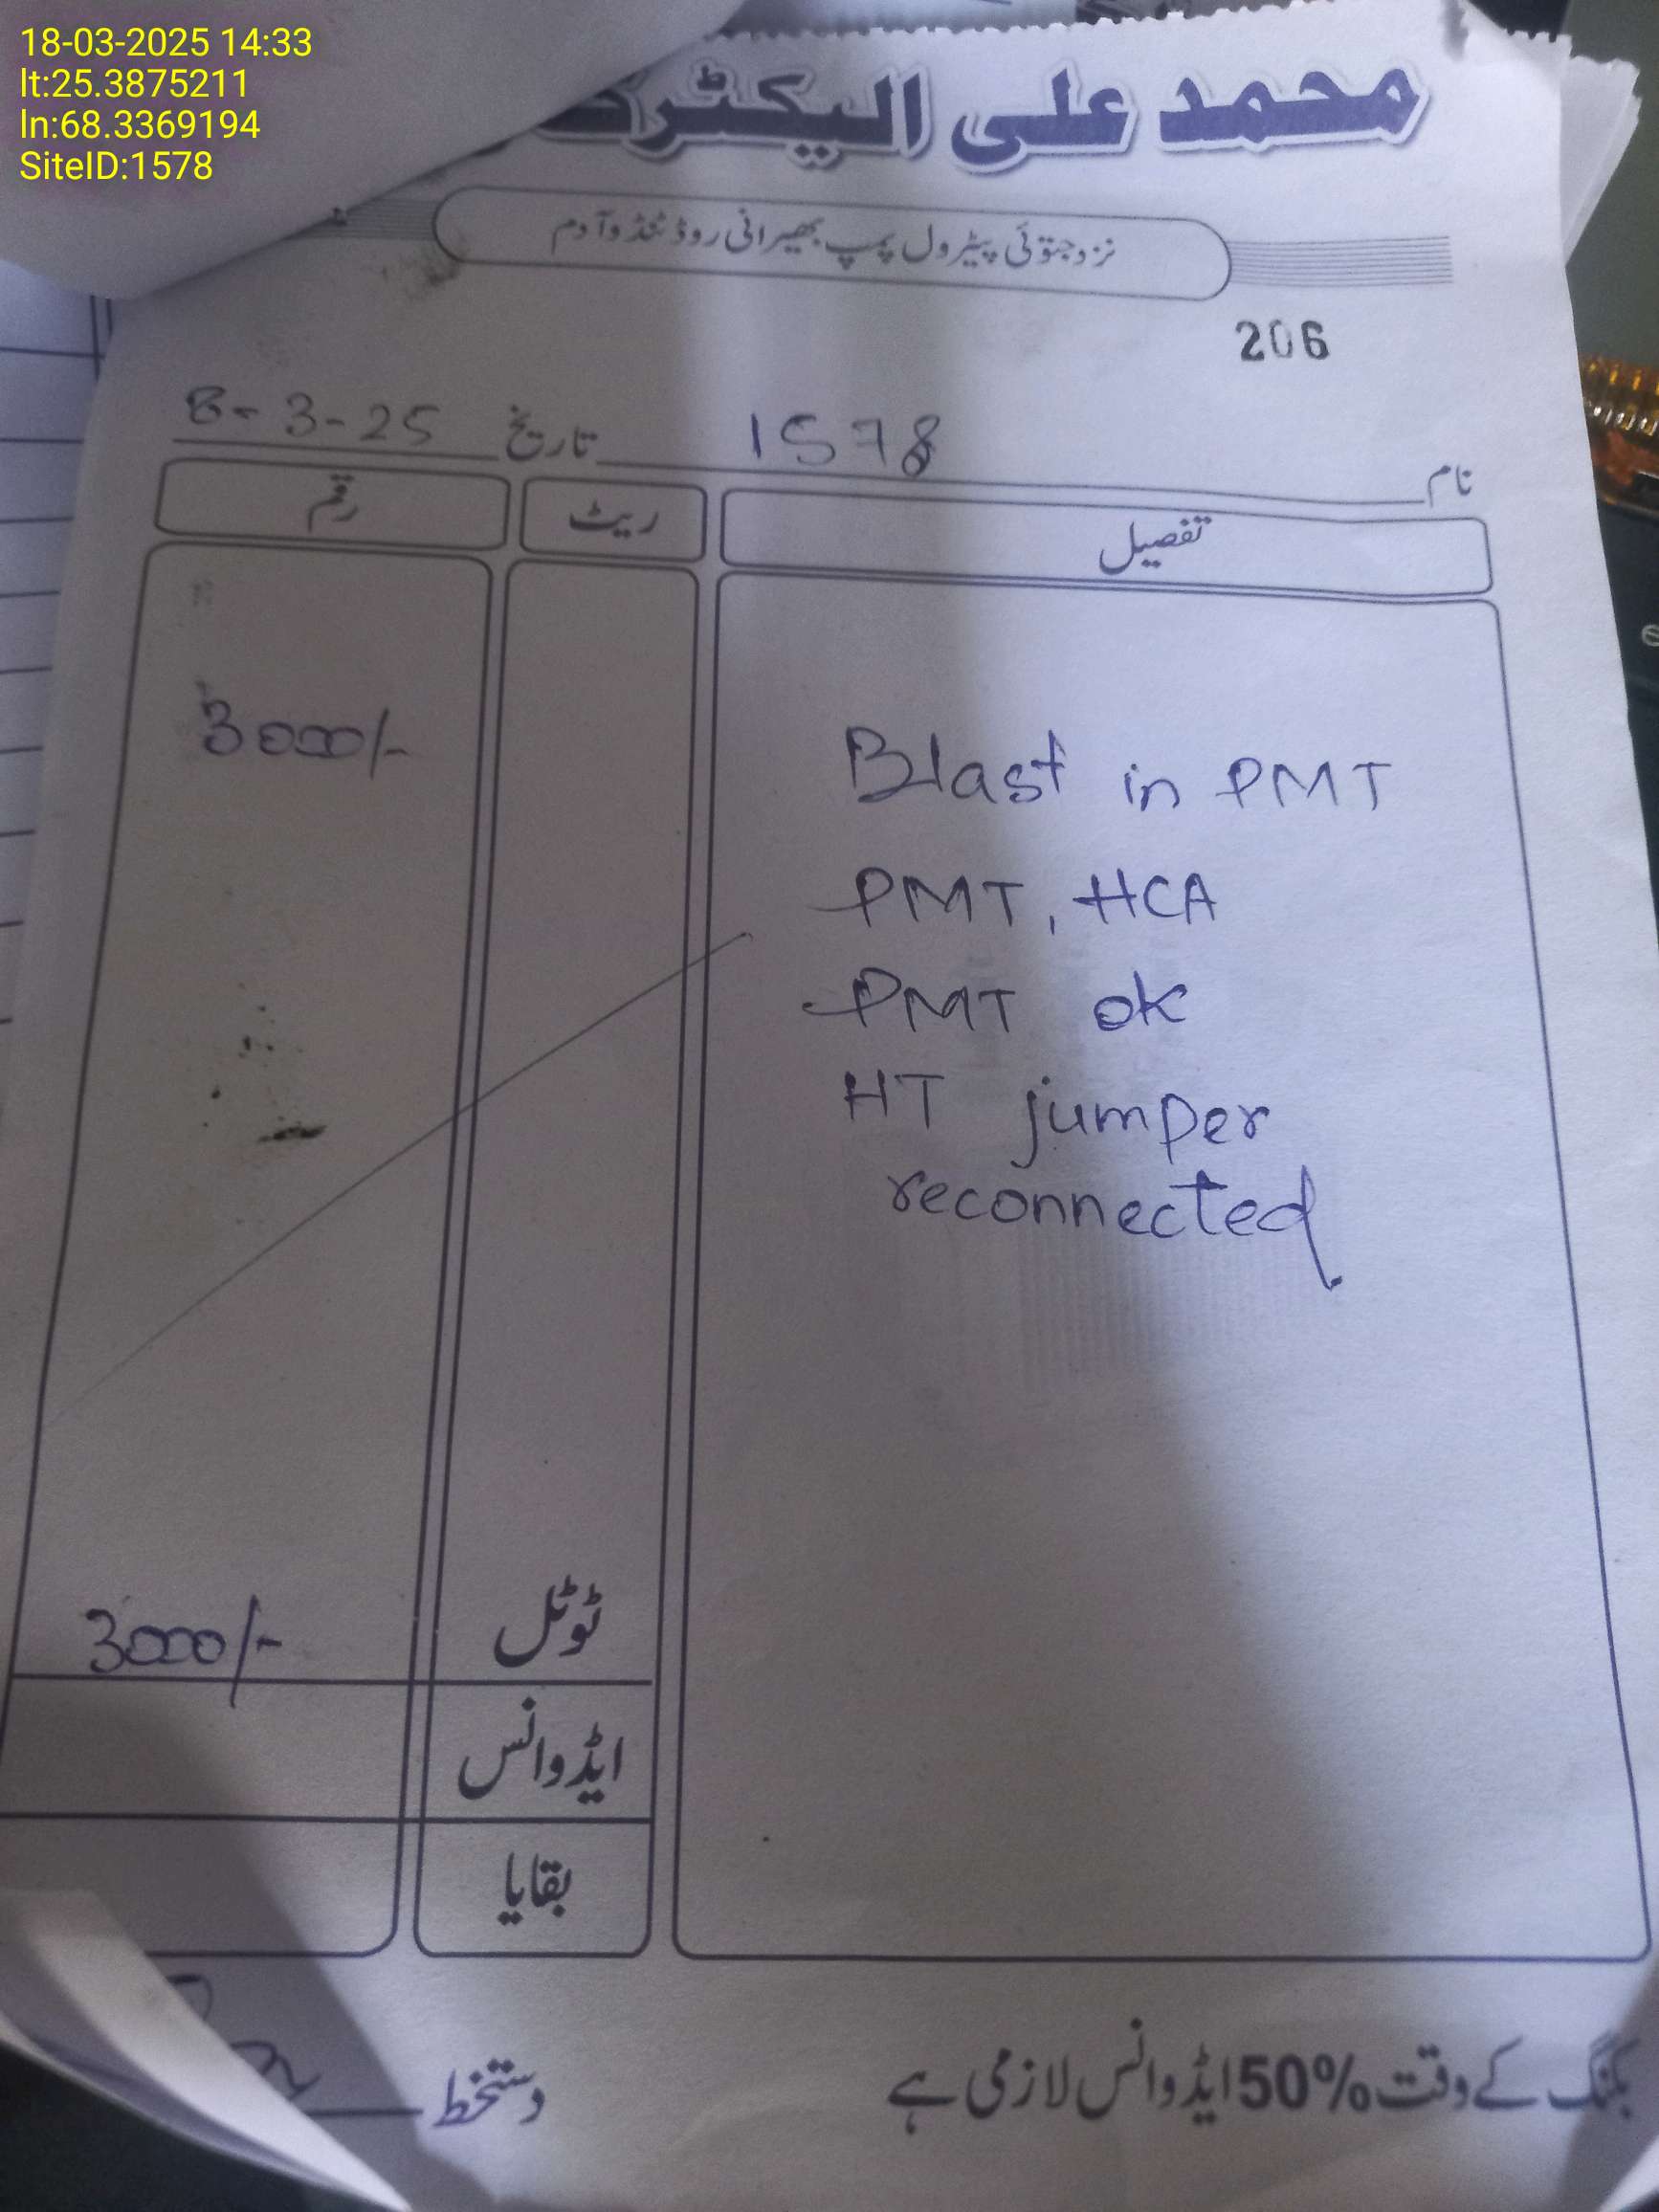 18-03-2025 14:33
lt:25.3875211
ln:68.3369194
SiteID:1578
محمد علی الیکٹرک
نزد جتوئی پیٹرول پمپ بھیرانی روڈ ٹنڈوآدم
206
نام 1578 تاریخ 8-3-25
تفصیل ریٹ رقم
Blast in PMT 3000/-
PMT, HCA
PMT ok
HT jumper
reconnected
ٹوٹل 3000/-
ایڈوانس
بقایا
بکنگ کے وقت 50% ایڈوانس لازمی ہے
دستخط